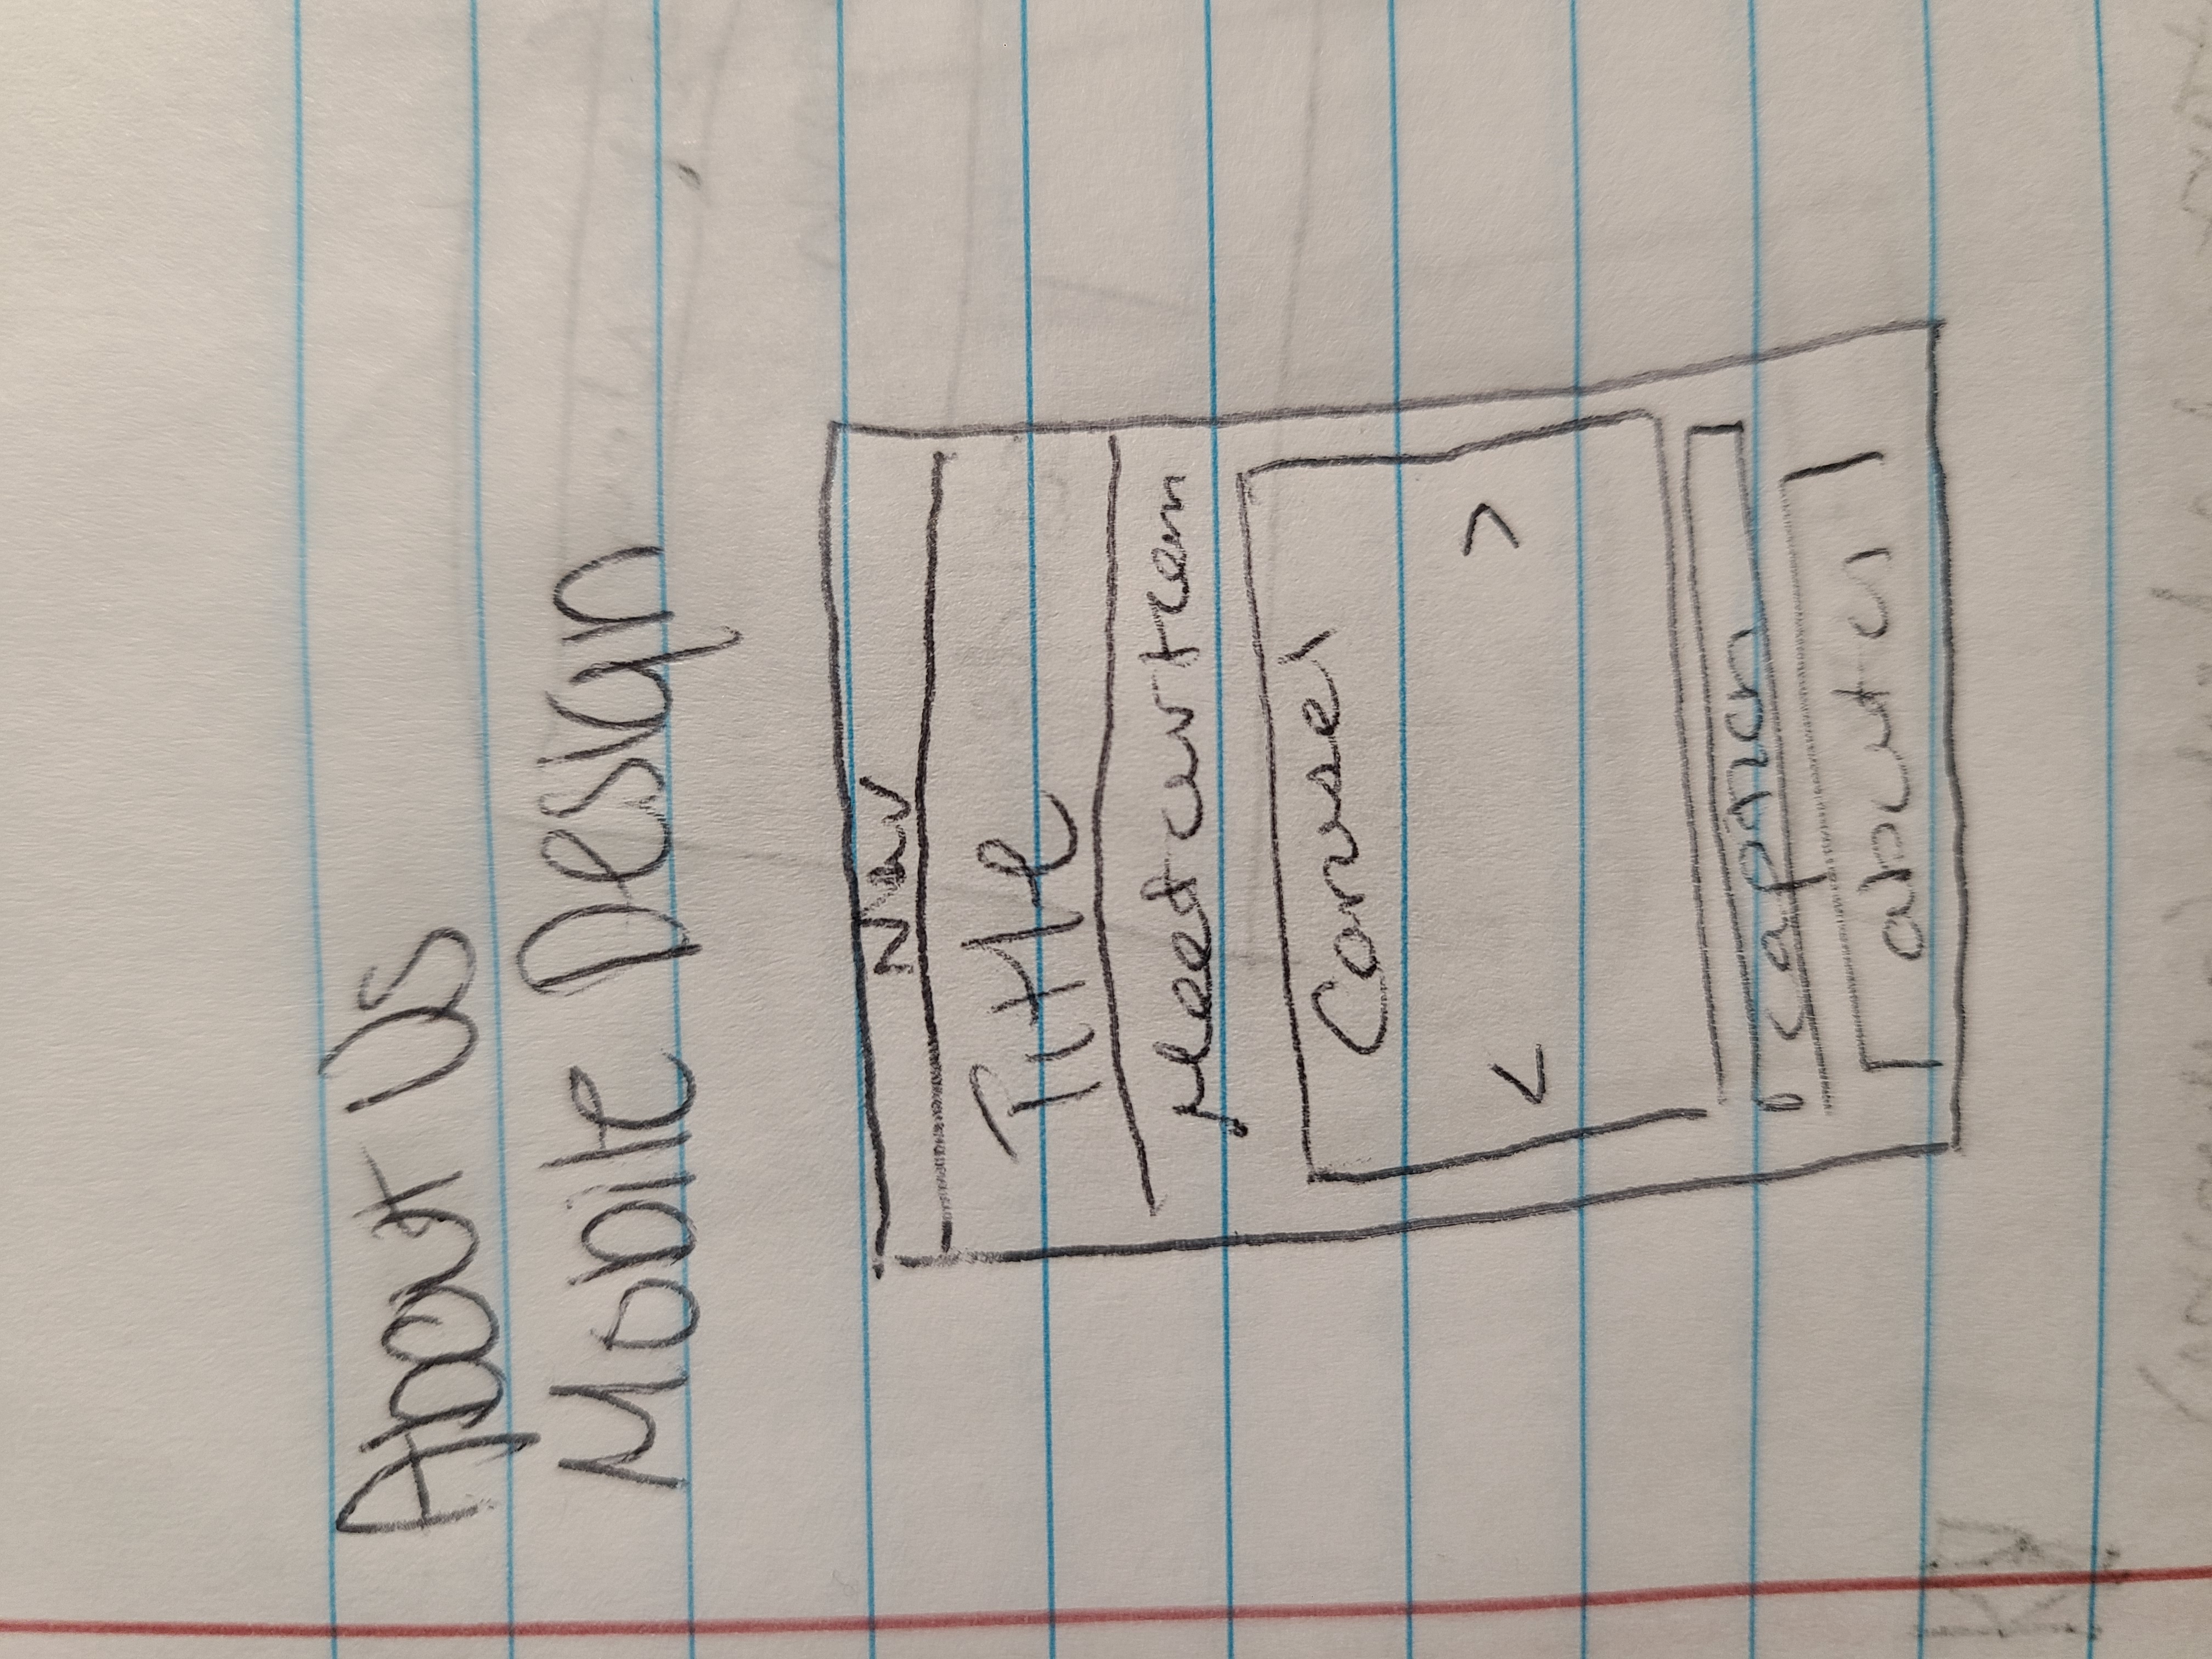 About Us
Mobile Design
Nav
Title
Meet our team
Carusel
< >
caption
about us